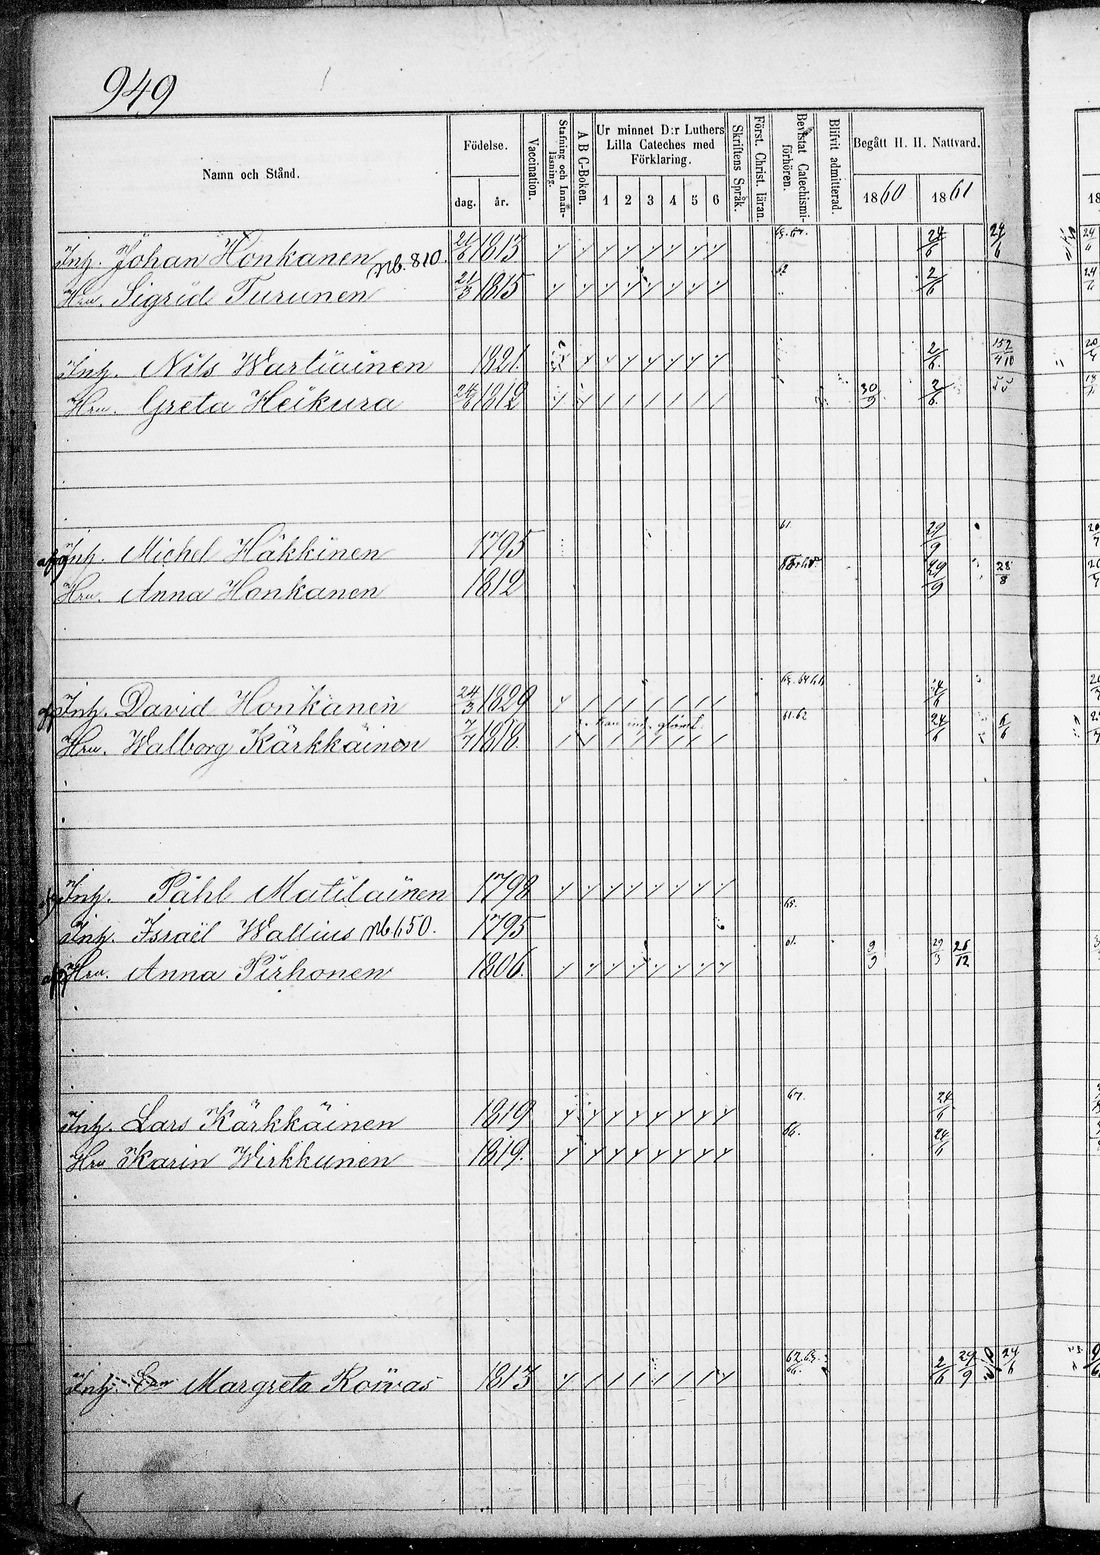 949
Namn och Stånd. Födelse. dag. år. Vaccination. Stafning och Innanläsning. A B C-Boken. Ur minnet D:r Luthers Lilla Cateches med Förklaring. 1 2 3 4 5 6 Skriftens Språk. Först. Christ. läran. Bevistat Catechismiförhören. Blifvit admitterad. Begått H. H. Nattvard. 1860 1861
Inh. Johan Honkanen Nb. 810 1813 24/6 24/6
Hru. Sigrid Turunen 1815 2/6
Inh. Nils Wartiainen 1821. 2/6
Hru. Greta Heikura 24/6 1812 30/9 2/6
Inh. Michel Häkkinen 1795 61 29/9
Hru. Anna Honkanen 1812 29/9 28/8
Inh. David Honkanen 24/3 1829
Hru. Walborg Kärkkäinen 7/4 1818. 61.62 24/6 6/6
Inh. Påhl Matilainen 1798
Inh. Israël Wallius Nb 650. 1795 65.
Hru. Anna Pirhonen 1806. 61. 9/9 29/3 26/12
Inh. Lars Kärkkäinen 1819 67. 24/6
Hru Karin Wirkkunen 1819. 66. 24/6
Inh. Margreta Roivas 1813 62.63. 2/6 29/9 24/6